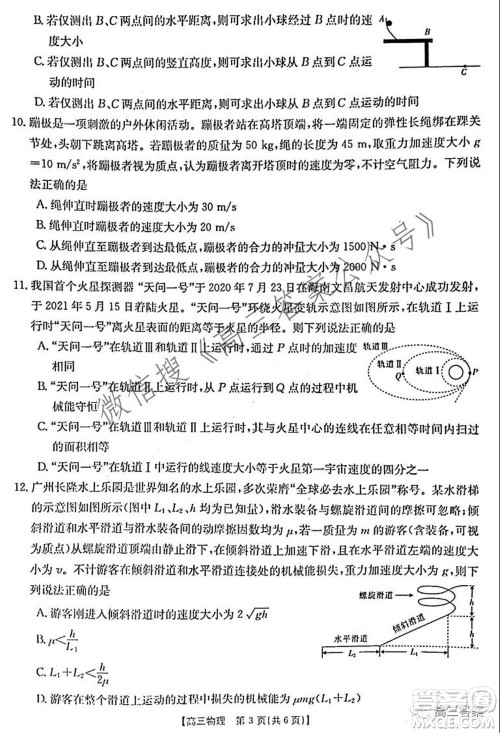 B. 若仅测出 B、C 两点间的水平距离,可求出小球经过 B 点时的速
度大小
C. 若仅测出 B、C 两点间的竖直高度,可求出小球从 B 点到 C 点运
动的时间
D. 若仅测出 B、C 两点间的水平距离,可求出小球从 B 点到 C 点运动的时间
A
B
C
10. 蹦极是一项刺激的户外休闲活动。蹦极者站在高塔顶端,将一端固定的弹性长绳绑在踝关
节处,头朝下跳离高塔。若蹦极者的质量为 50 kg,弹性绳的长度为 45 m,取重力加速度大小 g
=10 m/s²,不计空气阻力,认为蹦极者离开塔顶时的速度大小为零。下列说
法正确的是
A. 绳伸直时蹦极者的速度大小为 30 m/s
B. 绳伸直时蹦极者的速度大小为 40 m/s
C. 从绳伸直至蹦极者到达最低点,蹦极者的合力的冲量大小为 1500 N·s
D. 从绳伸直至蹦极者到达最低点,蹦极者的合力的冲量大小为 2000 N·s
11. 我国首个火星探测器“天问一号”于 2020 年 7 月 23 日在海南文昌航天发射中心成功发射,
于 2021 年 5 月 15 日着陆火星。“天问一号”环绕火星变轨示意图如图所示,在轨道Ⅰ上运行
时“天问一号”离火星表面的距离等于火星的半径。则下列说法正确的是
A. “天问一号”在轨道Ⅲ和轨道Ⅱ上通过 P 点时的加速度
相同
B. “天问一号”在轨道Ⅱ上运行时,从 P 点运行到 Q 点的过程中机
械能守恒
轨道Ⅲ
轨道Ⅱ
轨道Ⅰ
Q
P
C. “天问一号”在轨道Ⅲ和轨道Ⅱ上运行时,其与火星中心的连线在相等时间内扫过的面积
相等
D. “天问一号”在轨道Ⅰ上运行的线速度大小是火星第一宇宙速度的四分之一
12. 广州长隆水上乐园是世界知名的水上乐园,多次荣膺“全球必去水上乐园”称号。某水滑梯
的示意图如图所示(图中 L₁、L₂、h 均为已知量),螺旋滑道的摩擦可忽略,
倾斜滑道和水平滑道与水滑装备间的动摩擦因数均为 μ,若一质量为 m 的游客(含装备)
从螺旋滑道顶端由静止滑下,在倾斜滑道上也一直加速,且在水平滑道左端的速度大
小为 v。不计游客在倾斜滑道和水平滑道连接处的机械能损失,重力加速度大小为 g。下列
说法正确的是
A. 游客刚进入倾斜滑道时的速度大小为 2√gh
B. μ<h/L₁
C. μ<h/L₂
D. 游客在整个过程中损失的机械能为 μmg(L₁+L₂)
螺旋滑道
倾斜滑道
水平滑道
L₂
L₁
h
h
【高三物理 第 3 页(共 6 页)】
微信搜《高三答案公众号》
高三答案